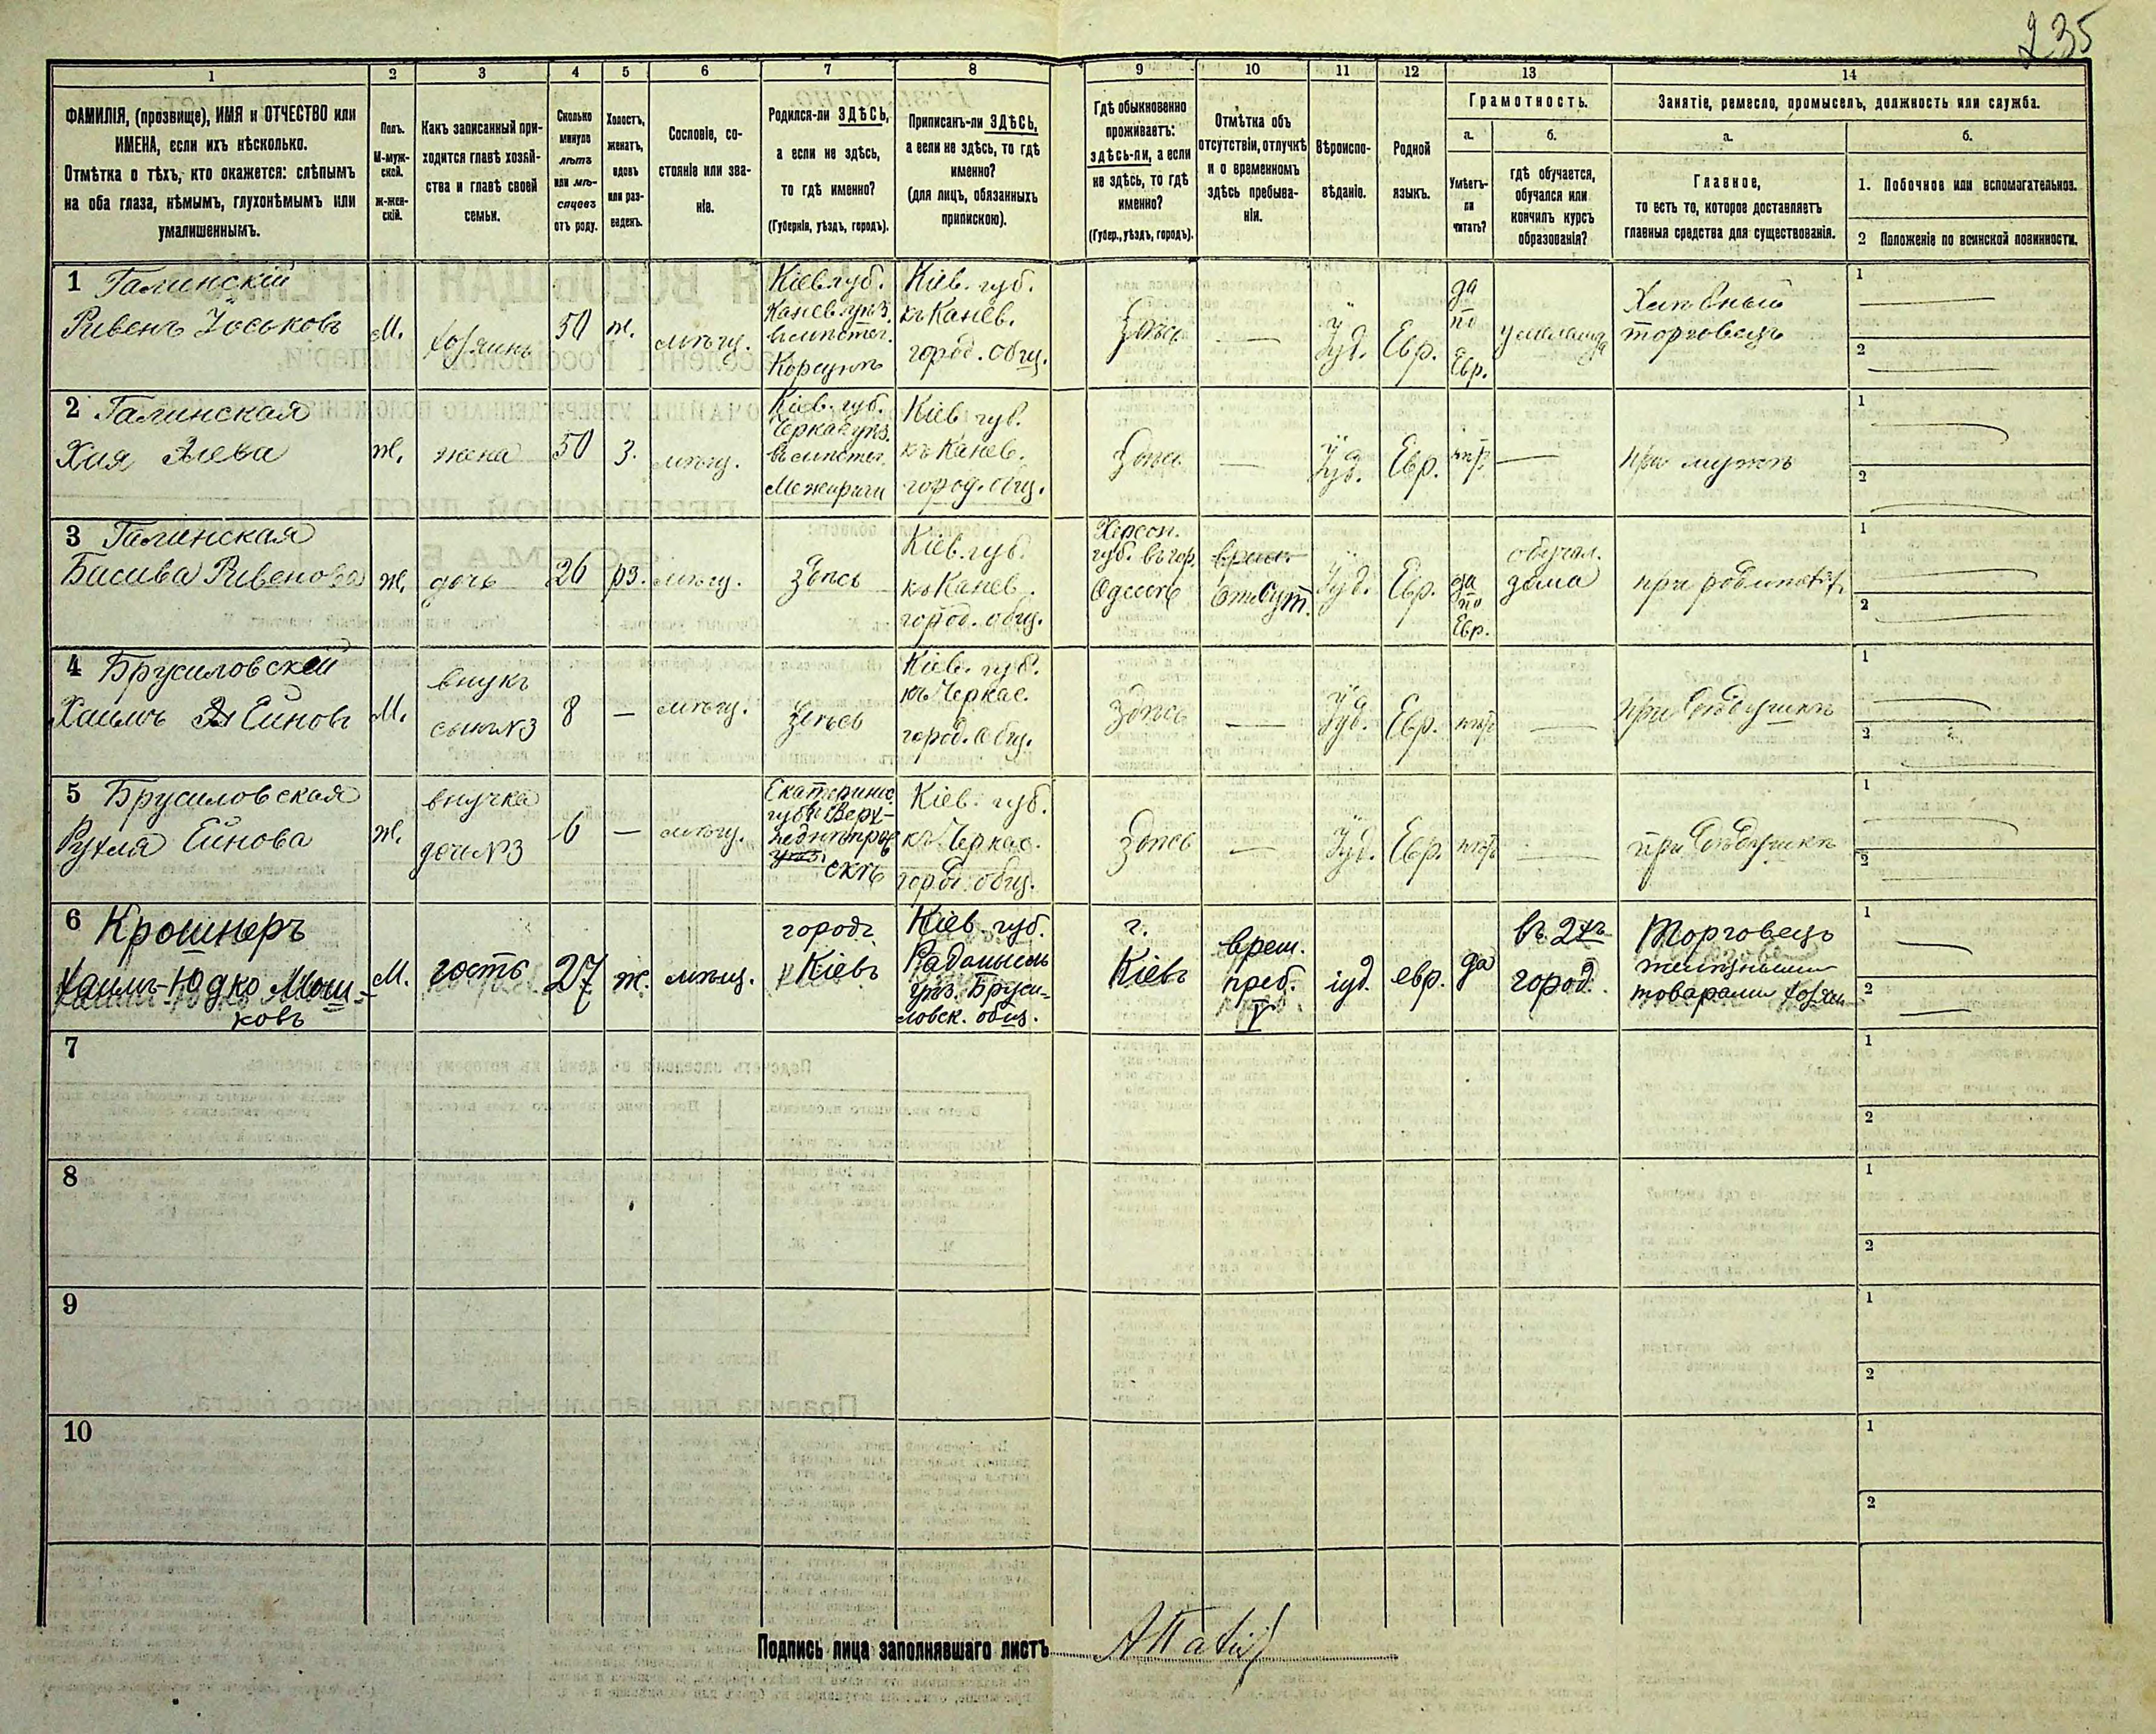 235
1
2
3
4
5
6
7
8
9
10
11
12
13
14
ФАМИЛІЯ, (прозвище), ИМЯ и ОТЧЕСТВО или
ИМЕНА, если ихъ нѣсколько.
Отмѣтка о тѣхъ, кто окажется: слѣпымъ
на оба глаза, нѣмымъ, глухонѣмымъ или
умалишеннымъ.
Полъ.
М-муж-
ской.
ж-жен-
скій.
Какъ записанный при-
ходится главѣ хозяй-
ства и главѣ своей
семьи.
Сколько
минуло
лѣтъ
или мѣ-
сяцевъ
отъ роду.
Холостъ,
женатъ,
вдовъ
или раз-
веденъ.
Сословіе, со-
стояніе или зва-
ніе.
Родился-ли ЗДѢСЬ,
а если не здѣсь,
то гдѣ именно?
(Губернія, уѣздъ, городъ).
Приписанъ-ли ЗДѢСЬ,
а если не здѣсь, то гдѣ
именно?
(для лицъ, обязанныхъ
припискою).
Гдѣ обыкновенно
проживаетъ:
здѣсь-ли, а если
не здѣсь, то гдѣ
именно?
(Губер., уѣздъ, городъ).
Отмѣтка объ
отсутствіи, отлучкѣ
и о временномъ
здѣсь пребыва-
ніи.
Вѣроиспо-
вѣданіе.
Родной
языкъ.
Грамотность.
а.
Умѣетъ-
ли
читать?
б.
гдѣ обучается,
обучался или
кончилъ курсъ
образованія?
Занятіе, ремесло, промыселъ, должность или служба.
а.
Главное,
то есть то, которое доставляетъ
главныя средства для существованія.
б.
1. Побочное или вспомагательное.
2 Положеніе по воинской повинности.
1 Галинскій
Ривенъ Іоськовъ
М.
хозяинъ
50
ж.
мѣщ.
Кіев. губ.
Канев. уѣз.
въ мѣстеч.
Корсунѣ
Кіев. губ.
къ Канев.
город. общ.
Здѣсь
—
Іуд.
Евр.
да
по
Евр.
у меламеда
Хлѣбный
торговецъ
1
2
2 Галинская
Хая
ж.
жена
50
з.
мѣщ.
Кіев. губ.
Черкас. уѣз.
въ мѣстеч.
Межиричи
Кіев. губ.
къ Канев.
город. общ.
Здѣсь
—
Іуд.
Евр.
нѣт
—
при мужѣ
1
2
3 Галинская
Басива Ривенова
ж.
дочь
26
рз.
мѣщ.
здѣсь
Кіев. губ.
къ Канев.
город. общ.
Херсон.
губ. въ гор.
Одессѣ
врем.
отсут.
Іуд.
Евр.
да
по
Евр.
обучал.
дома
при родителях
1
2
4 Брусиловскій
Хаимъ Ейновъ
М.
внукъ
сынъ №3
8
—
мѣщ.
здѣсь
Кіев. губ.
къ Черкас.
город. общ.
Здѣсь
—
Іуд.
Евр.
нѣт
—
при дѣдушкѣ
1
2
5 Брусиловская
Рухля Ейнова
ж.
внучка
дочь №3
6
—
мѣщ.
Екатеринос.
губ. Верх-
недниѣпров
уѣз.
скѣ
Кіев. губ.
къ Черкас.
город. общ.
Здѣсь
—
Іуд.
Евр.
нѣт
—
при дѣдушкѣ
1
2
6 Крошнеръ
Хаимъ-Юдко Мош-
ковъ
М.
гость
27
ж.
мѣщ.
городъ
Кіевъ
Кіев. губ.
Радомысль
уѣз. Бруси-
ловск. общ.
г.
Кіевъ
врем.
преб.
V
іуд.
евр.
да
въ 2хъ
город.
Торговецъ
желѣзными
товарами хозяин
1
2
7
1
2
8
1
2
9
1
2
10
1
2
Подпись лица заполнявшаго листъ